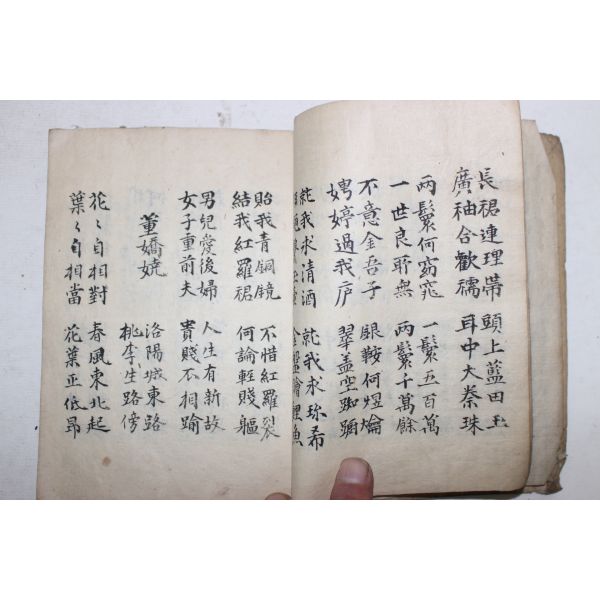 長裾連理帶 頭上藍田玉
廣袖合歡襦 耳中大秦珠
兩鬟何窈窕 一鬟五百萬
一世良所無 兩鬟千萬餘
不意金吾子 銀鞍何煜爚
娉婷過我庐 翠盖空踟躕
就我求清酒 就我求珍肴
金盤鱠鯉魚
貽我青銅鏡 不惜紅羅裂
結我紅羅裙 何論輕賤軀
男兒愛後婦 人生有新故
女子重前夫 貴賤不相踰
董嬌嬈 洛陽城東路
桃李生路傍
花〻自相對 春風東北起
葉〻自相當 花葉正低昂